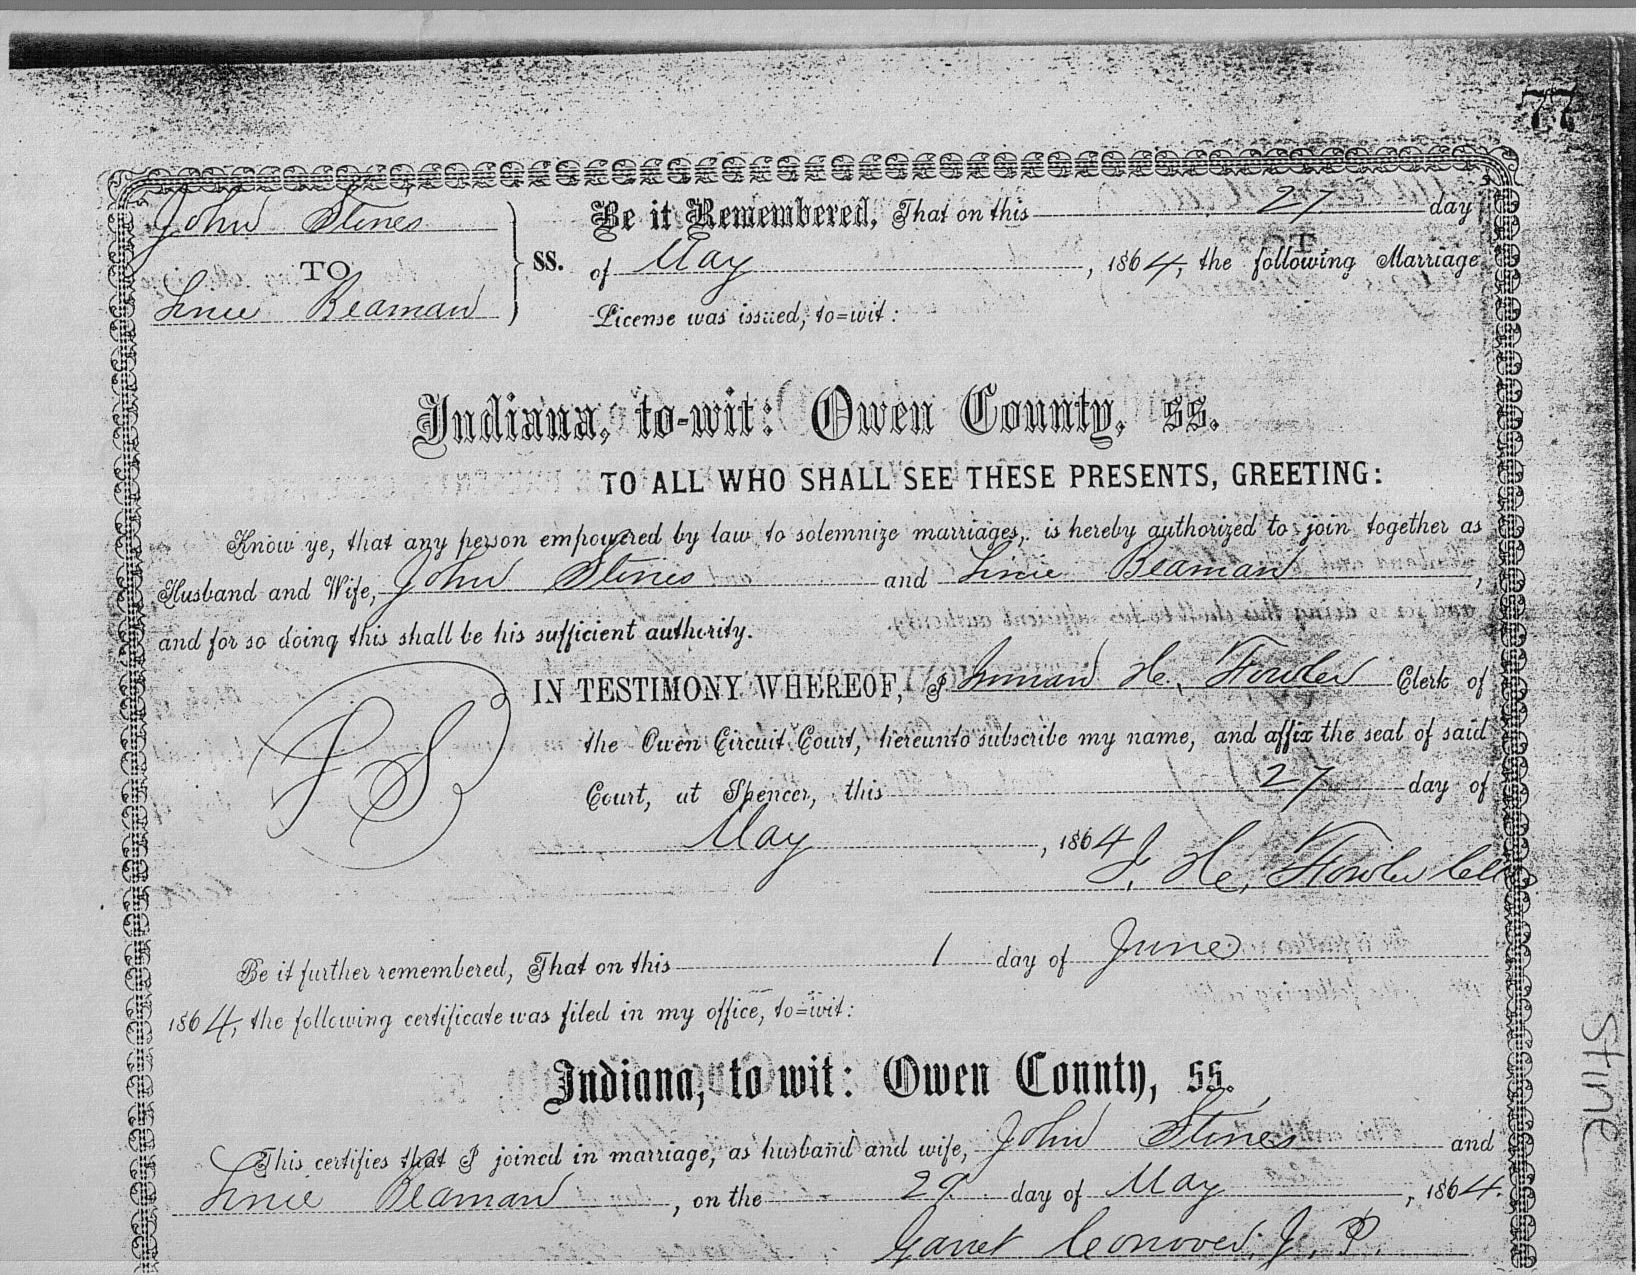 77
John Stines
TO
Linie Beaman
ss.
Be it Remembered, That on this 27 day
of May, 1864, the following Marriage
License was issued, to=wit:
Indiana, to-wit: Owen County, ss.
TO ALL WHO SHALL SEE THESE PRESENTS, GREETING:
Know ye, that any person empowered by law to solemnize marriages, is hereby authorized to join together as
Husband and Wife, John Stines and Linie Beaman,
and for so doing this shall be his sufficient authority.
IN TESTIMONY WHEREOF, I Inman H. Fowler Clerk of
the Owen Circuit Court, hereunto subscribe my name, and affix the seal of said
Court, at Spencer, this 27 day of
May, 1864
I. H. Fowler Clk
Be it further remembered, That on this 1 day of June
1864, the following certificate was filed in my office, to=wit:
Indiana, to wit: Owen Connty, ss.
This certifies that I joined in marriage, as husband and wife, John Stines and
Linie Beaman, on the 29 day of May, 1864.
Garret Conover, J. P.
Stine